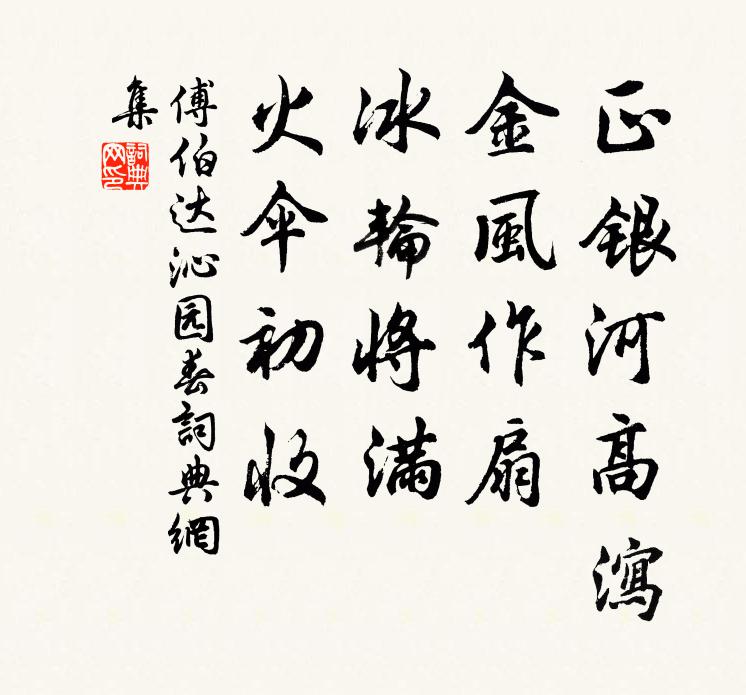 正銀河高瀉
金風作扇
冰輪將滿
火傘初收
傅伯达沁园春詞典網
集
詞典
网印